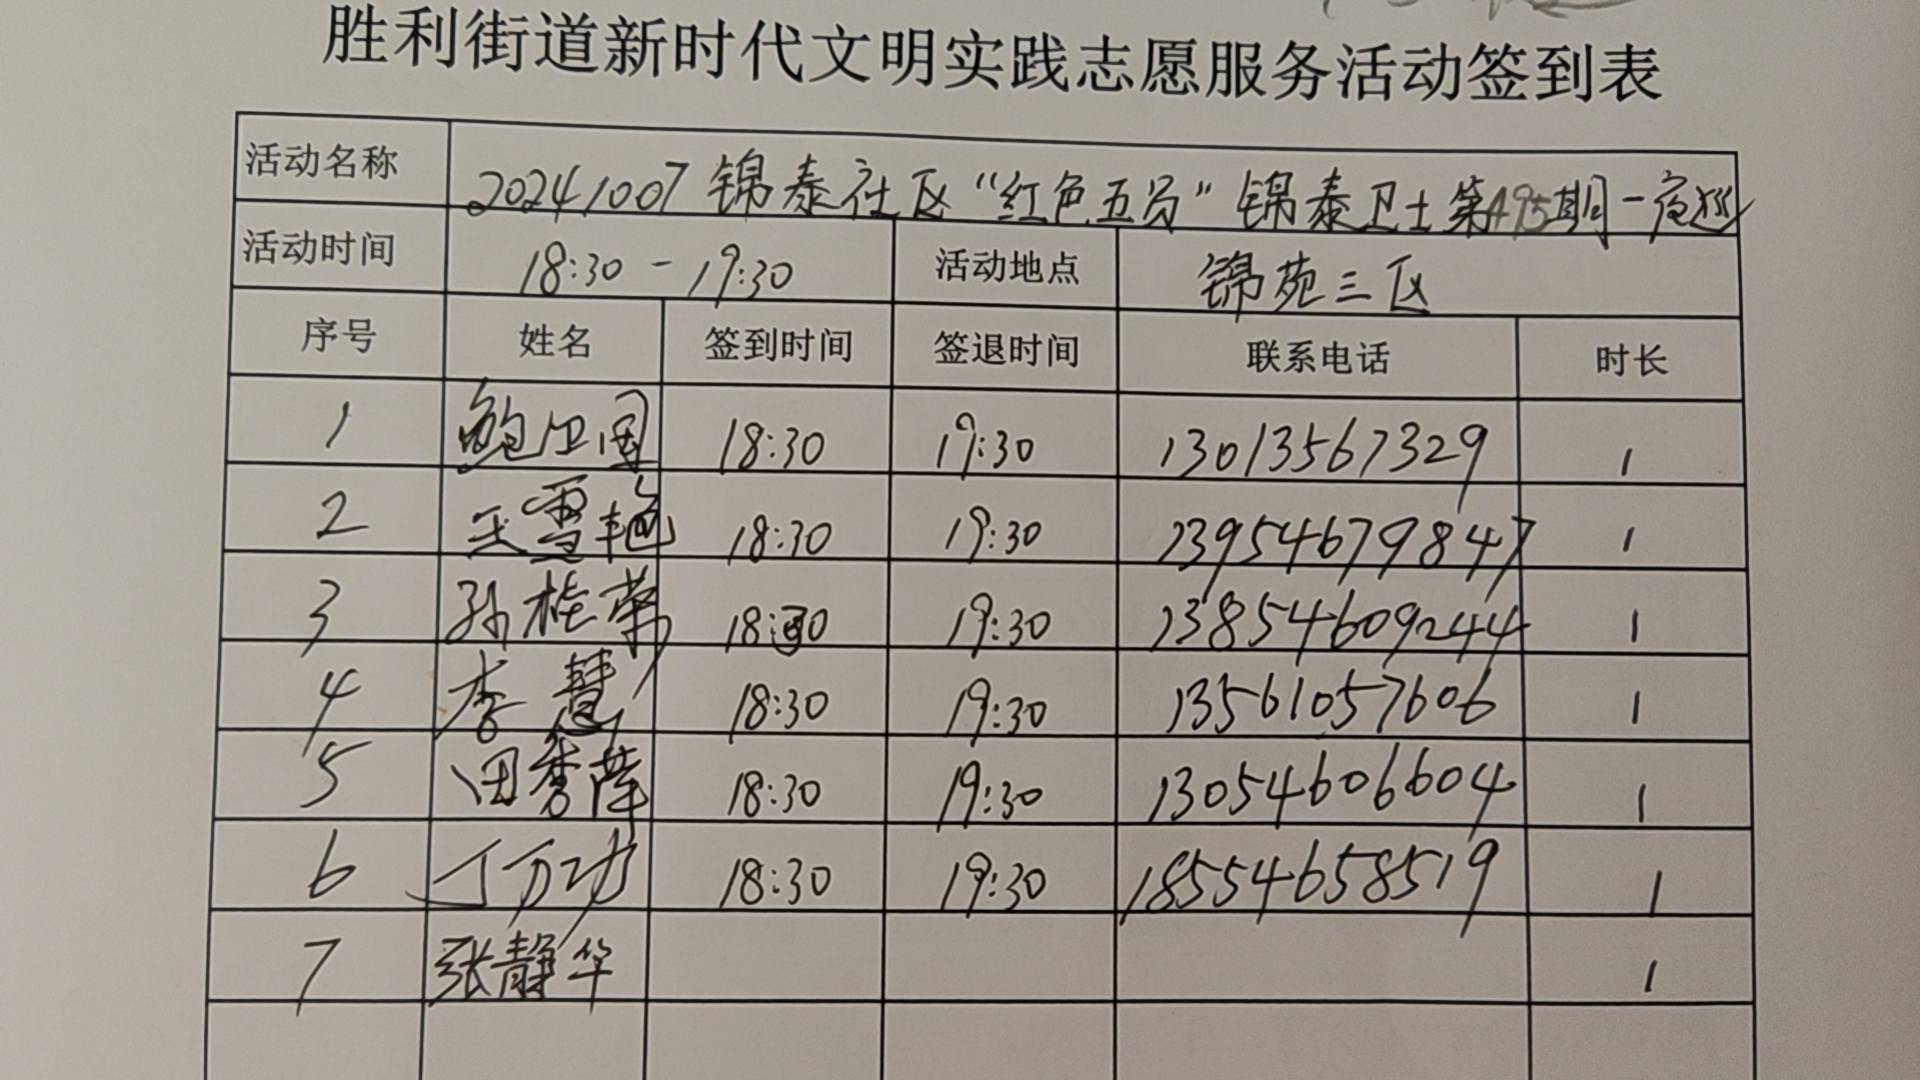 胜利街道新时代文明实践志愿服务活动签到表
活动名称 20241007 锦泰社区“红色五员”锦泰卫士第495期-夜巡
活动时间 18:30 - 19:30 活动地点 锦苑三区
序号 姓名 签到时间 签退时间 联系电话 时长
1 鲍卫国 18:30 19:30 13013567329 1
2 王雪艳 18:30 19:30 13954679847 1
3 孙桂荣 18:30 19:30 13854609244 1
4 李慧 18:30 19:30 13561057606 1
5 田秀萍 18:30 19:30 13054606604 1
6 丁万功 18:30 19:30 18554658519 1
7 张静华 1